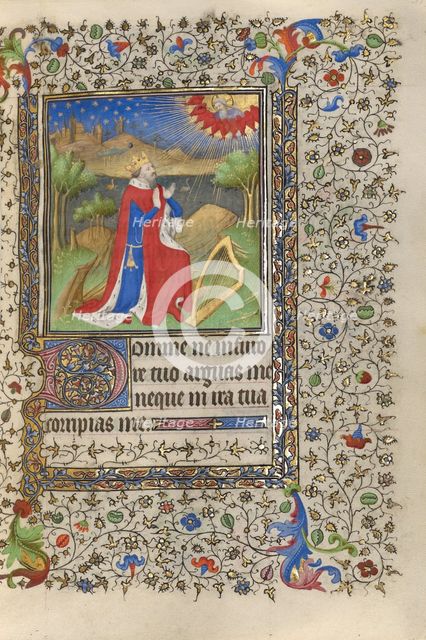 Heritage Heritage Heritage
Heritage Heritage
Domine ne in furo
re tuo arguas me
neque in ira tua
corripias me
Heritage Heritage Heritage